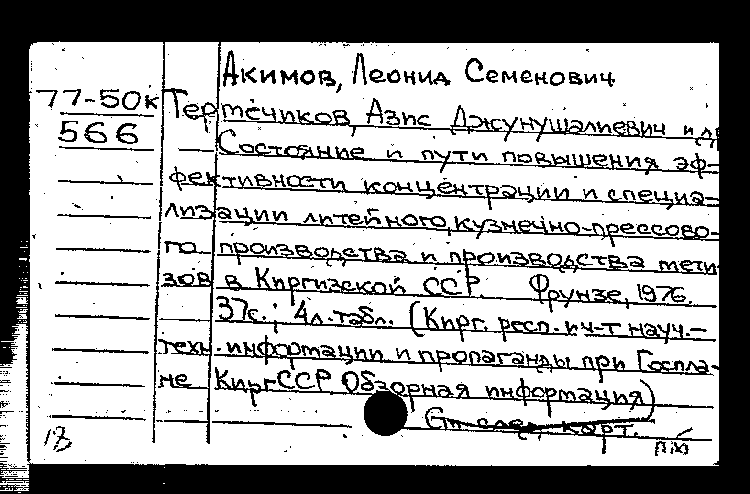 Акимов, Леонид Семенович
77-50к Тертечиков, Азис Джунушалиевич и др
566 Состояние и пути повышения эф-
фективности концентрации и специа-
лизации литейного, кузнечно-прессово-
го производства и производства мети-
зов в Киргизской ССР. Фрунзе, 1976.
37с.; 4л.табл. (Кирг. респ. ин-т науч.-
техн. информации и пропаганды при Госпла-
не КиргССР Обзорная информация)
См след. карт.
18